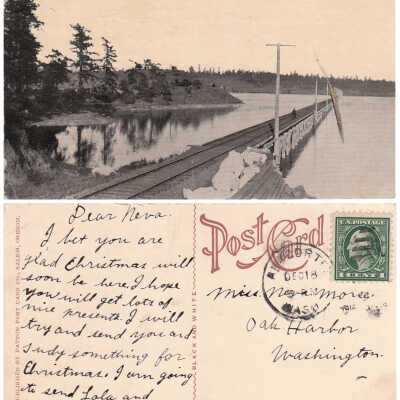 Dear Neva.
I bet you are
glad Christmas will
soon be here. I hope
you will get lots of
nice presents. I will
try and send you and
Judy something for
Christmas. I am going
to send Lola and
PUBLISHED BY PATTON POST CARD CO., SALEM, OREGON.
BLACK AND WHITE
Post Card
DEC 18
WASH
U.S. POSTAGE
1 CENT 1
Miss Neva Morse
Oak Harbor
Washington.